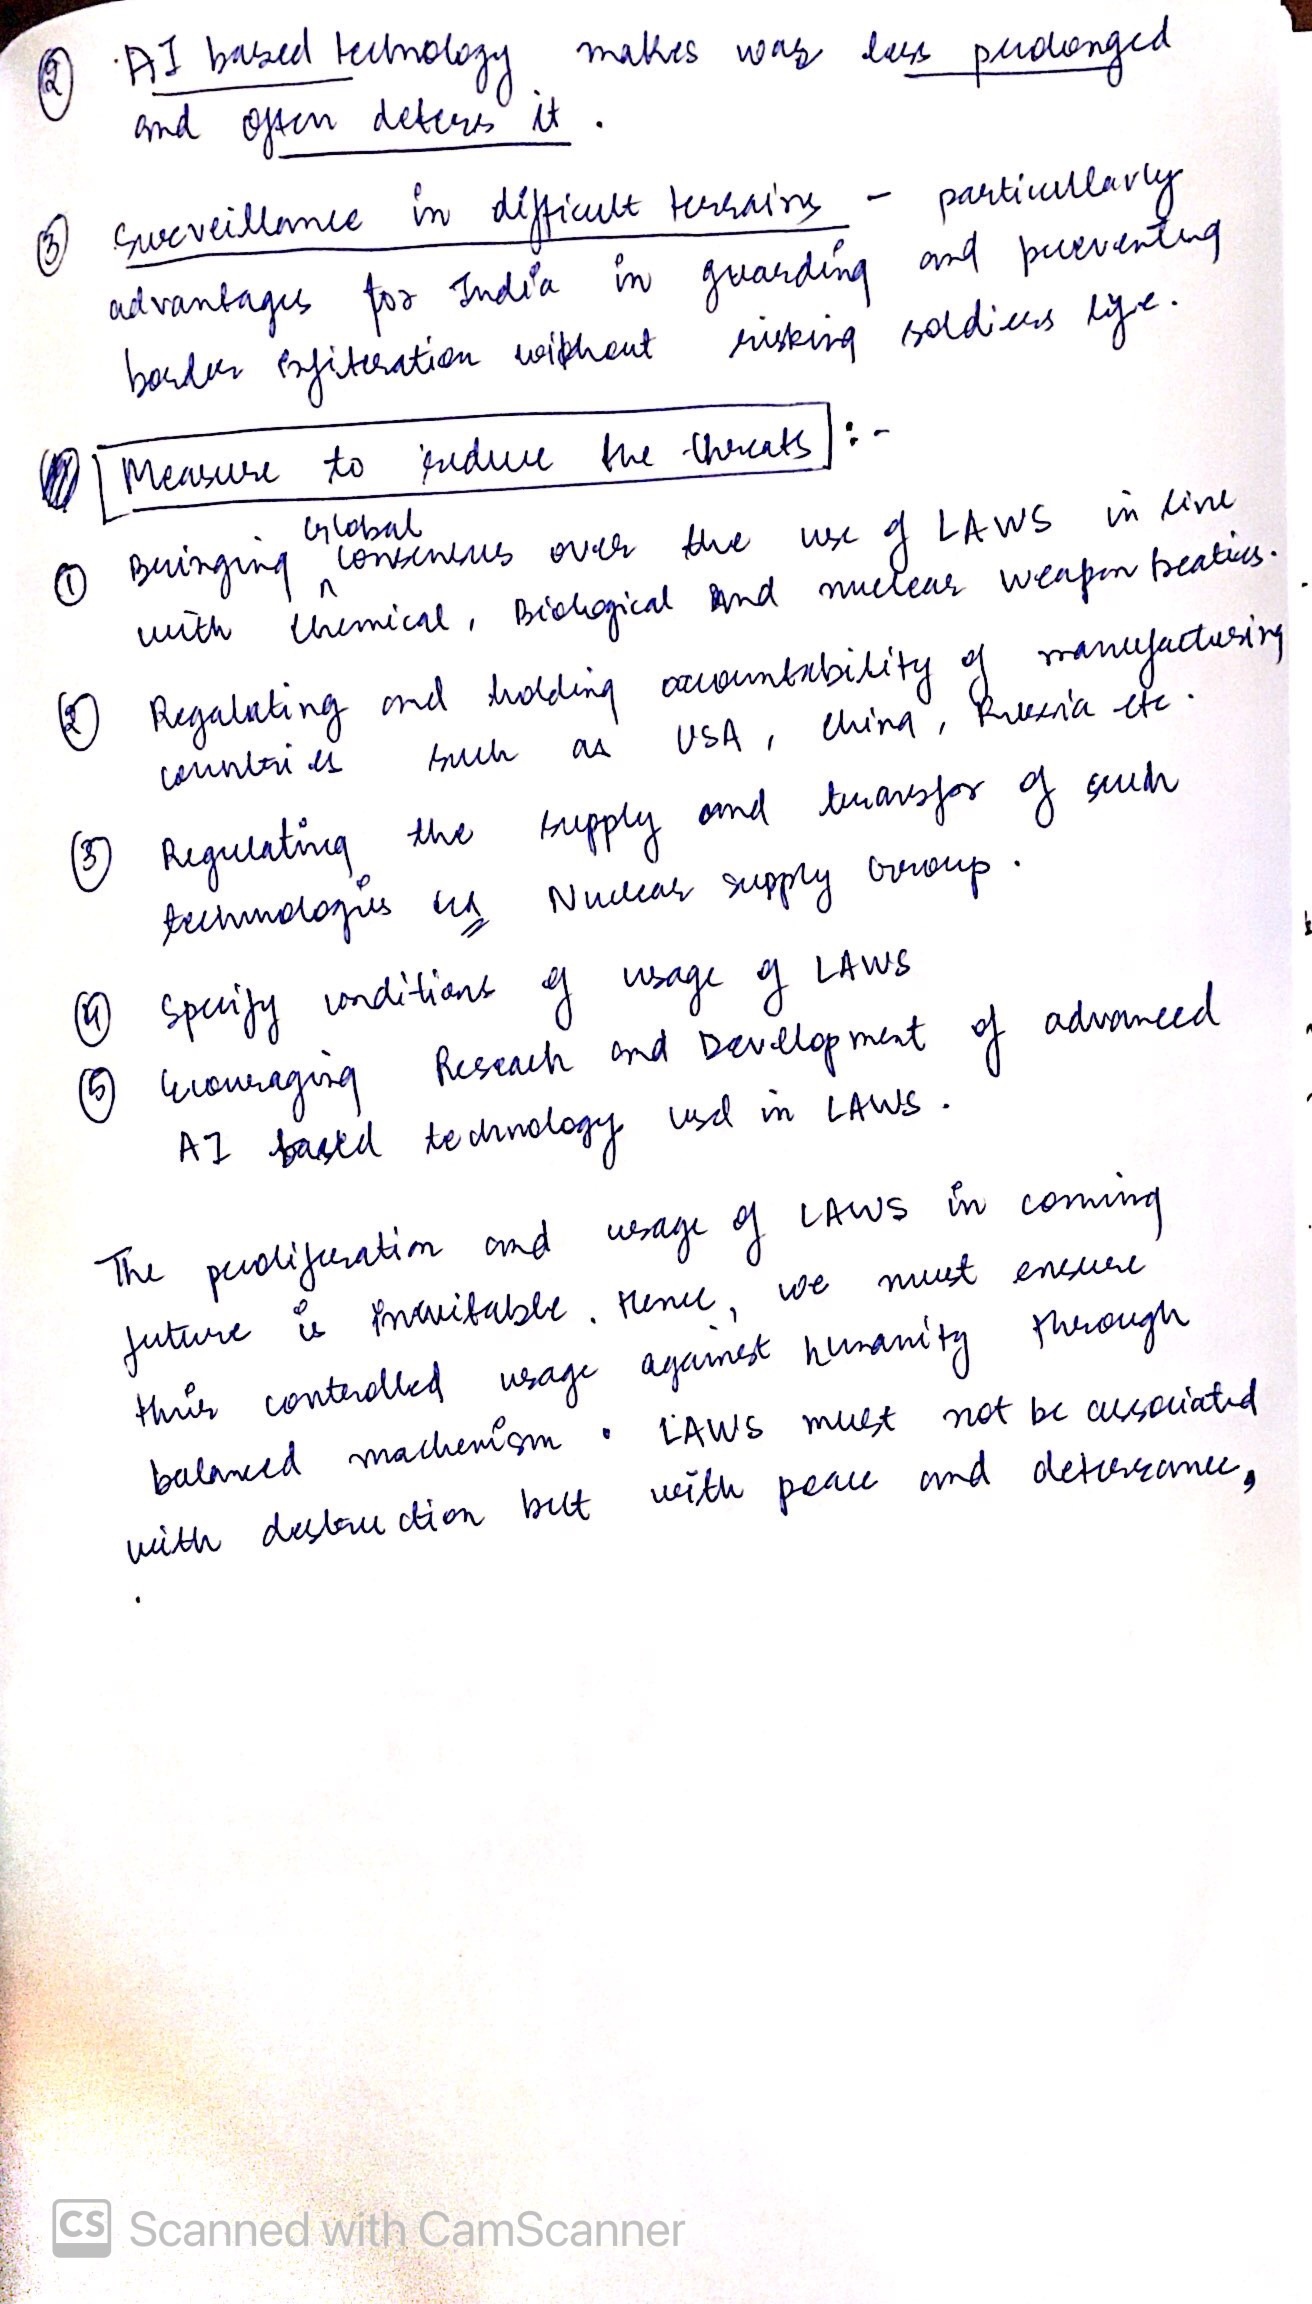 ② AI based technology makes war less prolonged
and often deters it.
③ Surveillance in difficult terrains - particullarly
advantages for India in guarding and preventing
border infiteration without risking soldiers life.
Measure to reduce the threats :-
Global
① Bringing ^ consensus over the use of LAWS in line
with Chemical, Biological and nuclear weapon treaties.
② Regulating and holding accountability of manufacturing
countries such as USA, China, Russia etc.
③ Regulating the supply and transfer of such
technologies eg Nuclear supply Group.
④ Specify conditions of usage of LAWS
⑤ Encouraging Reseach and Development of advanced
AI based technology used in LAWS.
The proliferation and usage of LAWS in coming
future is inevitable. Hence, we must ensure
their controlled usage against humanity through
balanced machenism. LAWS must not be associated
with destruction but with peace and deterrance,
.
CS Scanned with CamScanner